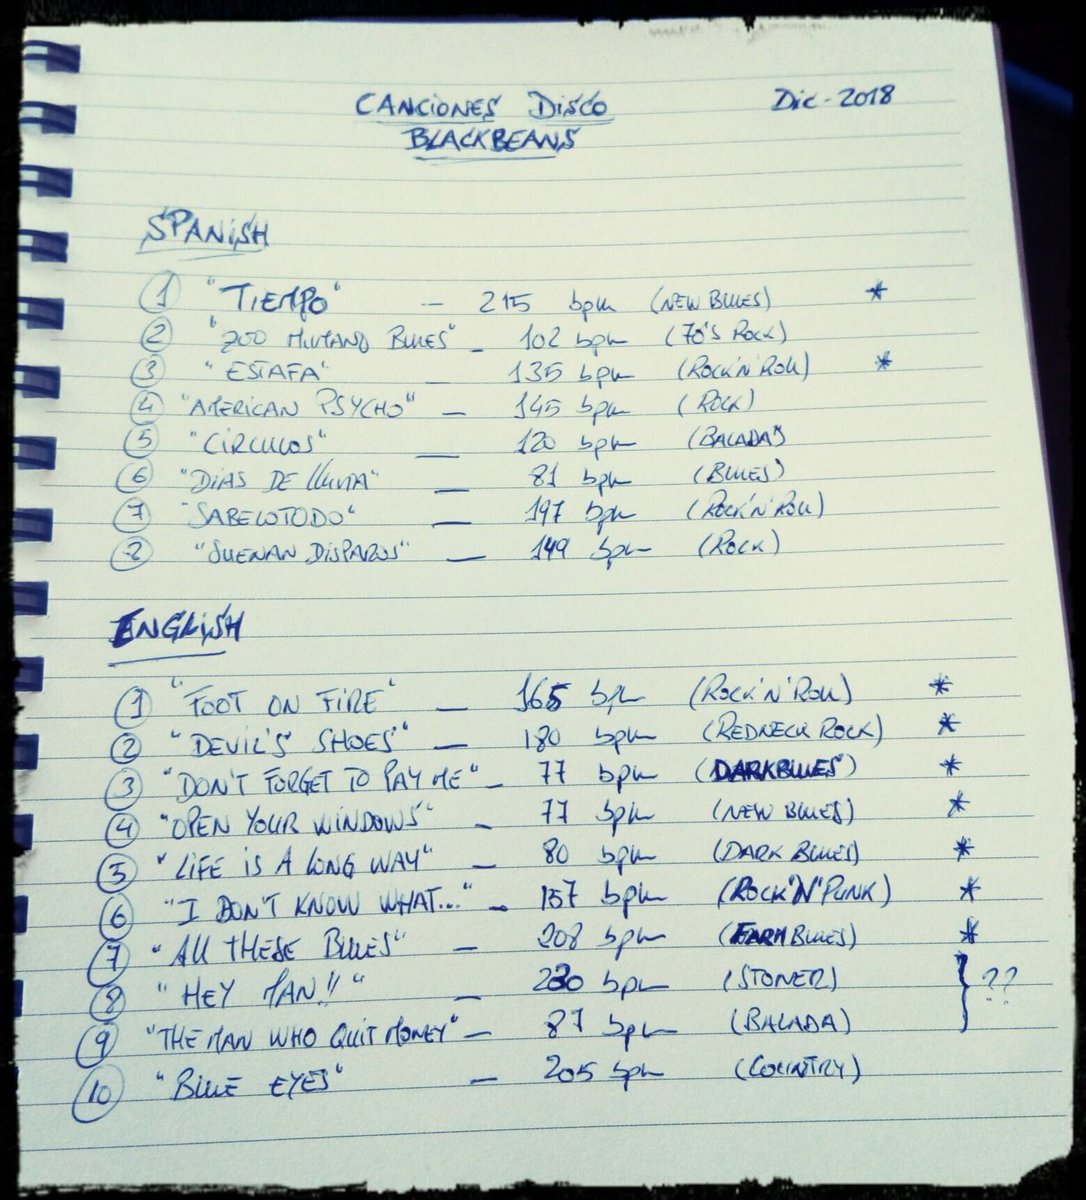 CANCIONES DISCO Dic-2018
BLACKBEANS
SPANISH
1 "TIEMPO" - 215 bpm (NEW BLUES) *
2 "ZOO HUMANO BLUES" - 102 bpm (70'S ROCK)
3 "ESTAFA" - 135 bpm (ROCK'N'ROLL) *
4 "AMERICAN PSYCHO" - 145 bpm (ROCK)
5 "CÍRCULOS" - 120 bpm (BALADA)
6 "DÍAS DE LLUVIA" - 81 bpm (BLUES)
7 "SABELOTODO" - 197 bpm (ROCK'N'ROLL)
8 "SUENAN DISPAROS" - 149 bpm (ROCK)
ENGLISH
1 "FOOT ON FIRE" - 165 bpm (ROCK'N'ROLL) *
2 "DEVIL'S SHOES" - 180 bpm (REDNECK ROCK) *
3 "DON'T FORGET TO PAY ME" - 77 bpm (DARK BLUES) *
4 "OPEN YOUR WINDOWS" - 77 bpm (NEW BLUES) *
5 "LIFE IS A LONG WAY" - 80 bpm (DARK BLUES) *
6 "I DON'T KNOW WHAT..." - 157 bpm (ROCK'N'PUNK) *
7 "ALL THESE BLUES" - 208 bpm (FARM BLUES) *
8 "HEY MAN!!" - 230 bpm (STONER) } ??
9 "THE MAN WHO QUIT MONEY" - 87 bpm (BALADA)
10 "BLUE EYES" - 205 bpm (COUNTRY)